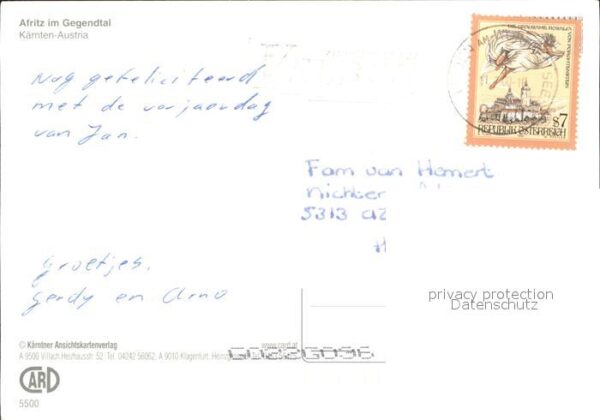 Afritz im Gegendtal
Kärnten-Austria
Nog gefeliciteerd
met de verjaardag
van Jan.
Groetjes,
Gerdy en Arno
Fam van Hamert
Nichter
5313 AZ
REPUBLIK ÖSTERREICH
S7
privacy protection
Datenschutz
© Kärntner Ansichtskartenverlag
www.card.at
A 9586 Villach Heizhausstr. 52. Tel. 04242 56062, A 9010 Klagenfurt.
CARD
5500